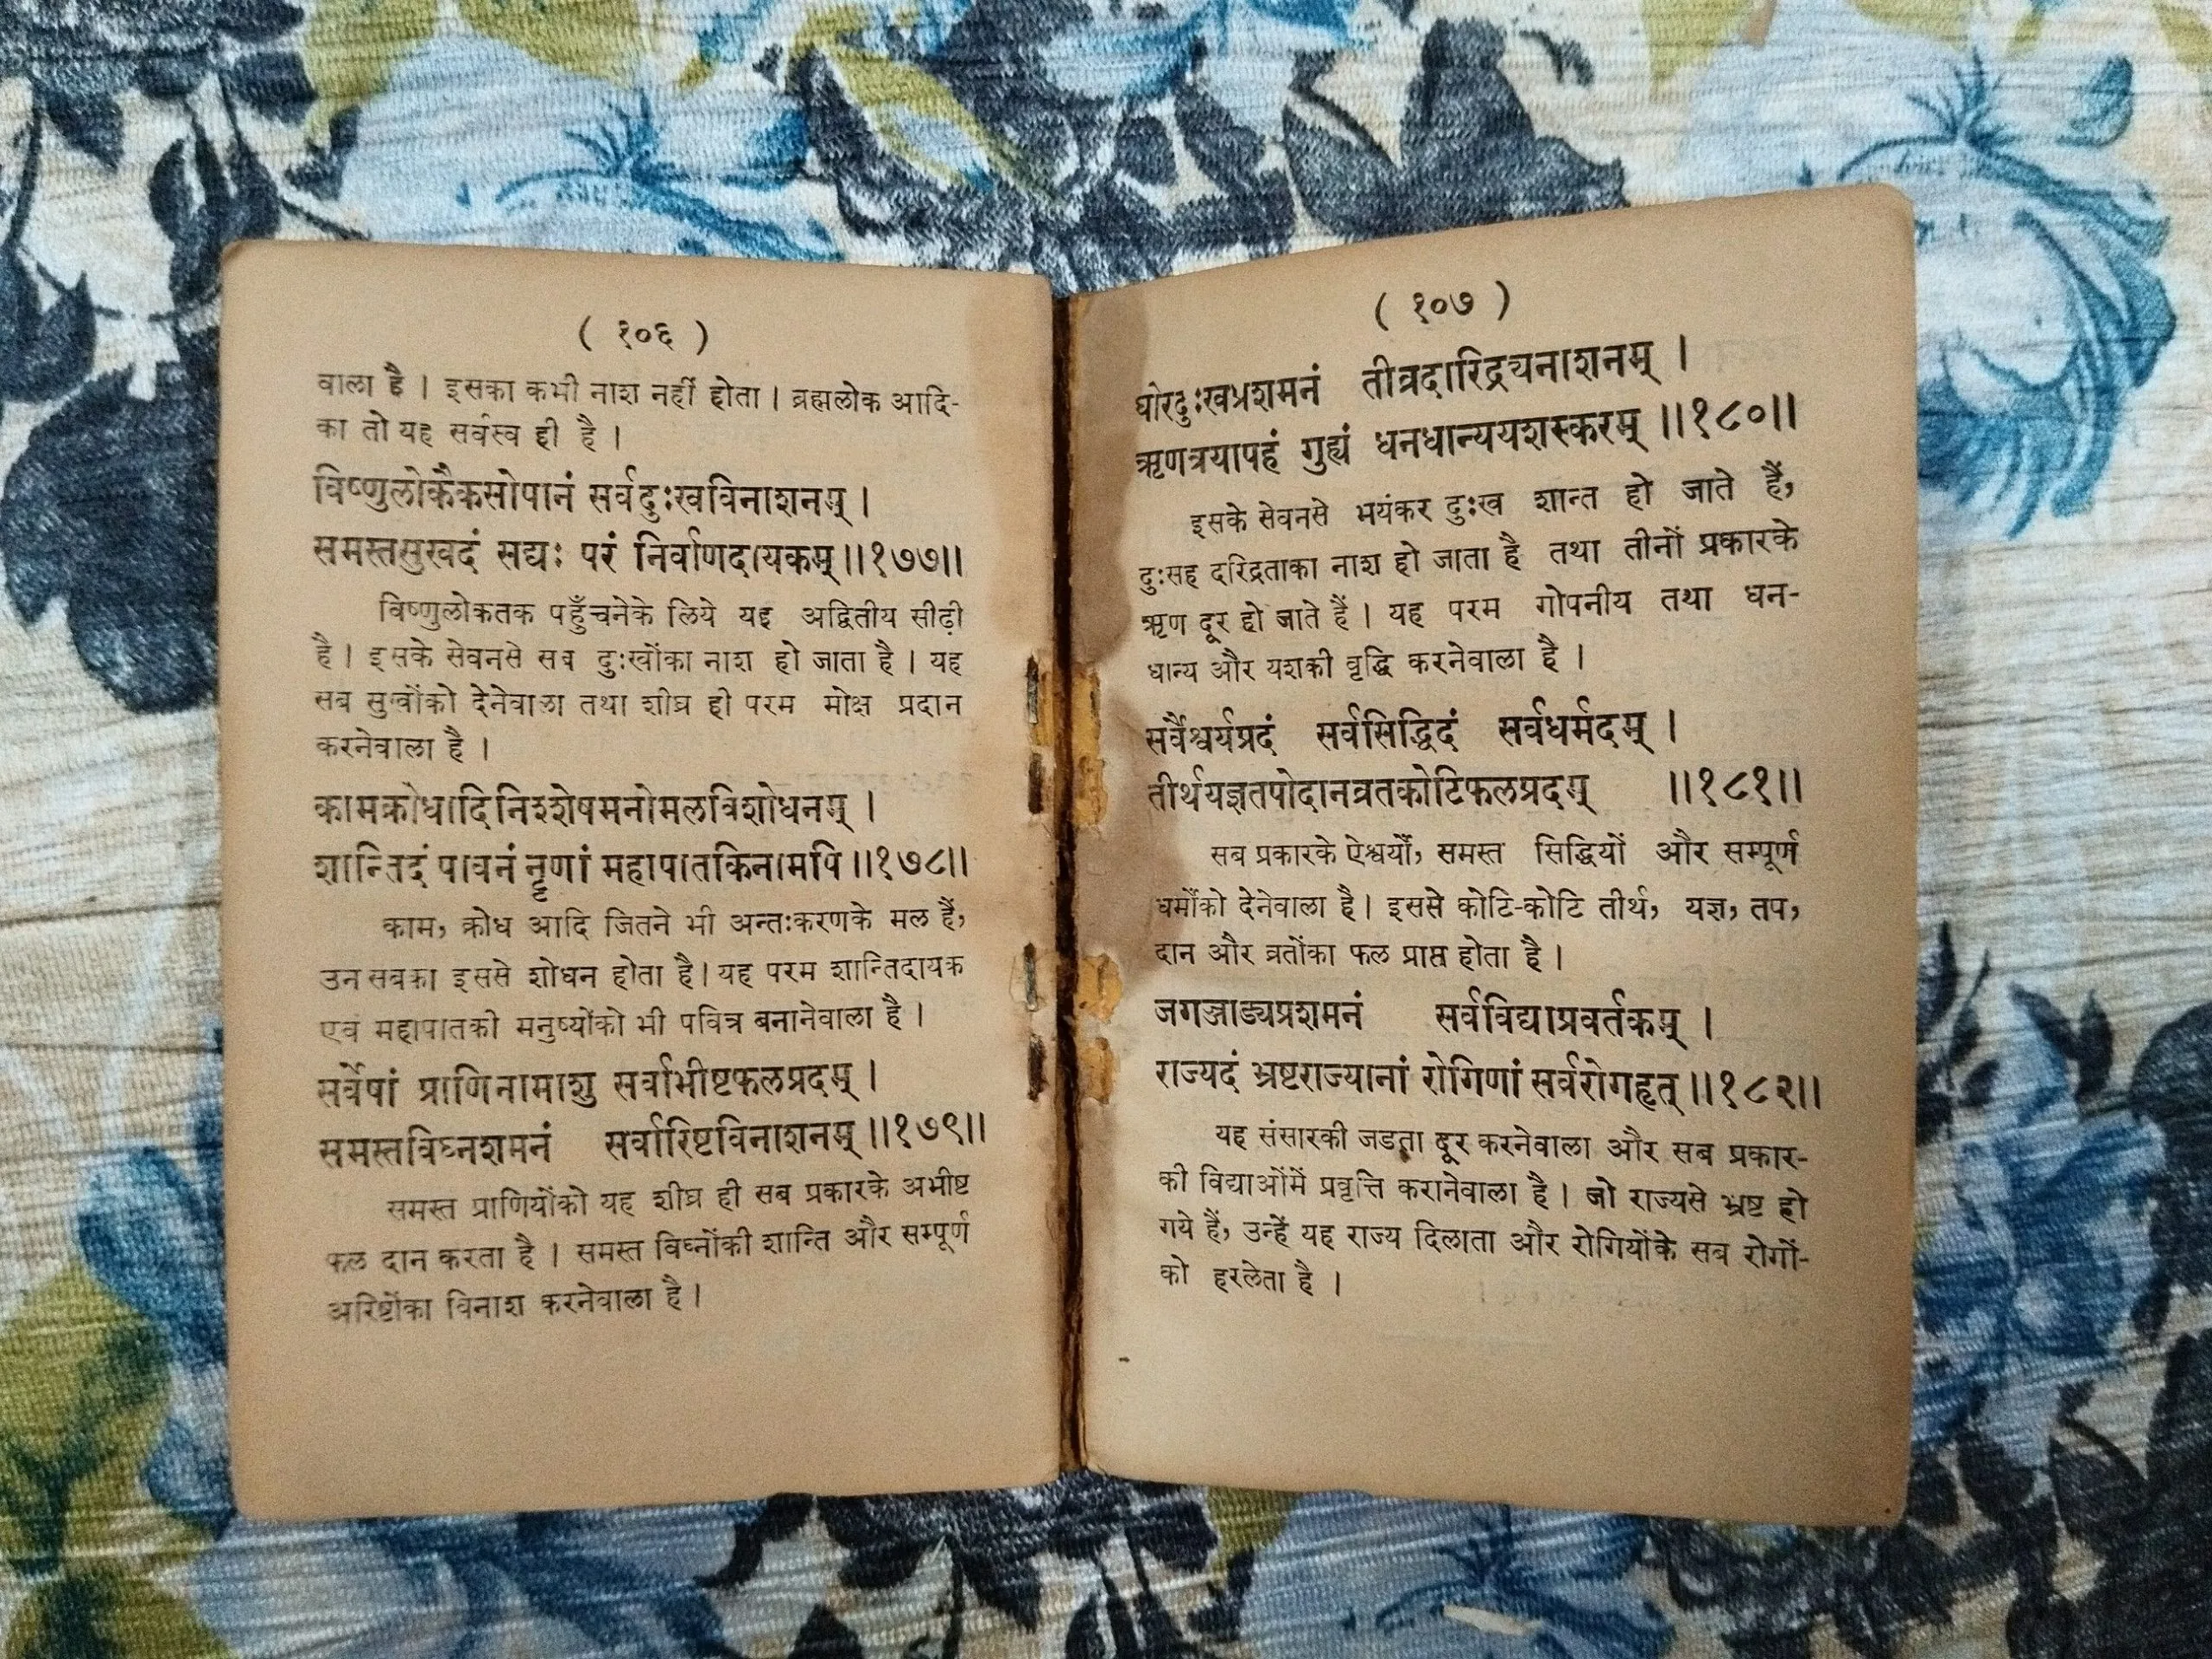 ( १०६ )
वाला है । इसका कभी नाश नहीं होता । ब्रह्मलोक आदि-
का तो यह सर्वस्व ही है ।
विष्णुलोकैकसोपानं सर्वदुःखविनाशनम् ।
समस्तसुखदं सद्यः परं निर्वाणदायकम् ॥१७७॥
विष्णुलोकतक पहुँचनेके लिये यह अद्वितीय सीढ़ी
है । इसके सेवनसे सब दुःखोंका नाश हो जाता है । यह
सब सुखोंको देनेवाला तथा शीघ्र ही परम मोक्ष प्रदान
करनेवाला है ।
कामक्रोधादिनिश्शेषमनोमलविशोधनम् ।
शान्तिदं पावनं नॄणां महापातकिनामपि ॥१७८॥
काम, क्रोध आदि जितने भी अन्तःकरणके मल हैं,
उन सबका इससे शोधन होता है। यह परम शान्तिदायक
एवं महापातकी मनुष्योंको भी पवित्र बनानेवाला है ।
सर्वेषां प्राणिनामाशु सर्वाभीष्टफलप्रदम् ।
समस्तविघ्नशमनं सर्वारिष्टविनाशनम् ॥१७९॥
समस्त प्राणियोंको यह शीघ्र ही सब प्रकारके अभीष्ट
फल दान करता है । समस्त विघ्नोंकी शान्ति और सम्पूर्ण
अरिष्टोंका विनाश करनेवाला है ।
( १०७ )
घोरदुःखप्रशमनं तीव्रदारिद्र्यनाशनम् ।
ऋणत्रयापहं गुह्यं धनधान्ययशस्करम् ॥१८०॥
इसके सेवनसे भयंकर दुःख शान्त हो जाते हैं,
दुःसह दरिद्रताका नाश हो जाता है तथा तीनों प्रकारके
ऋण दूर हो जाते हैं । यह परम गोपनीय तथा धन-
धान्य और यशकी वृद्धि करनेवाला है ।
सर्वैश्वर्यप्रदं सर्वसिद्धिदं सर्वधर्मदम् ।
तीर्थयज्ञतपोदानव्रतकोटिफलप्रदम् ॥१८१॥
सब प्रकारके ऐश्वर्यों, समस्त सिद्धियों और सम्पूर्ण
धर्मोंको देनेवाला है। इससे कोटि-कोटि तीर्थ, यज्ञ, तप,
दान और व्रतोंका फल प्राप्त होता है ।
जगज्जाड्यप्रशमनं सर्वविद्याप्रवर्तकम् ।
राज्यदं भ्रष्टराज्यानां रोगिणां सर्वरोगहृत् ॥१८२॥
यह संसारकी जडता दूर करनेवाला और सब प्रकार-
की विद्याओंमें प्रवृत्ति करानेवाला है । जो राज्यसे भ्रष्ट हो
गये हैं, उन्हें यह राज्य दिलाता और रोगियोंके सब रोगों-
को हरलेता है ।